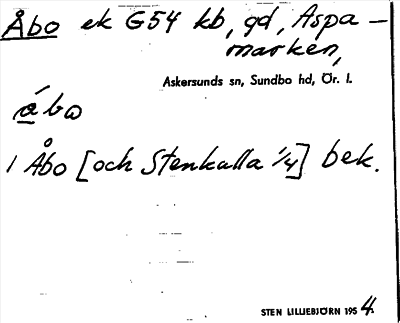 Åbo ek G54 kb, gd, Aspa-
marken,
Askersunds sn, Sundbo hd, Ör. l.
ábω
1 Åbo [och Stenkulla 1/4] bek.
STEN LILLIEBJÖRN 1954.